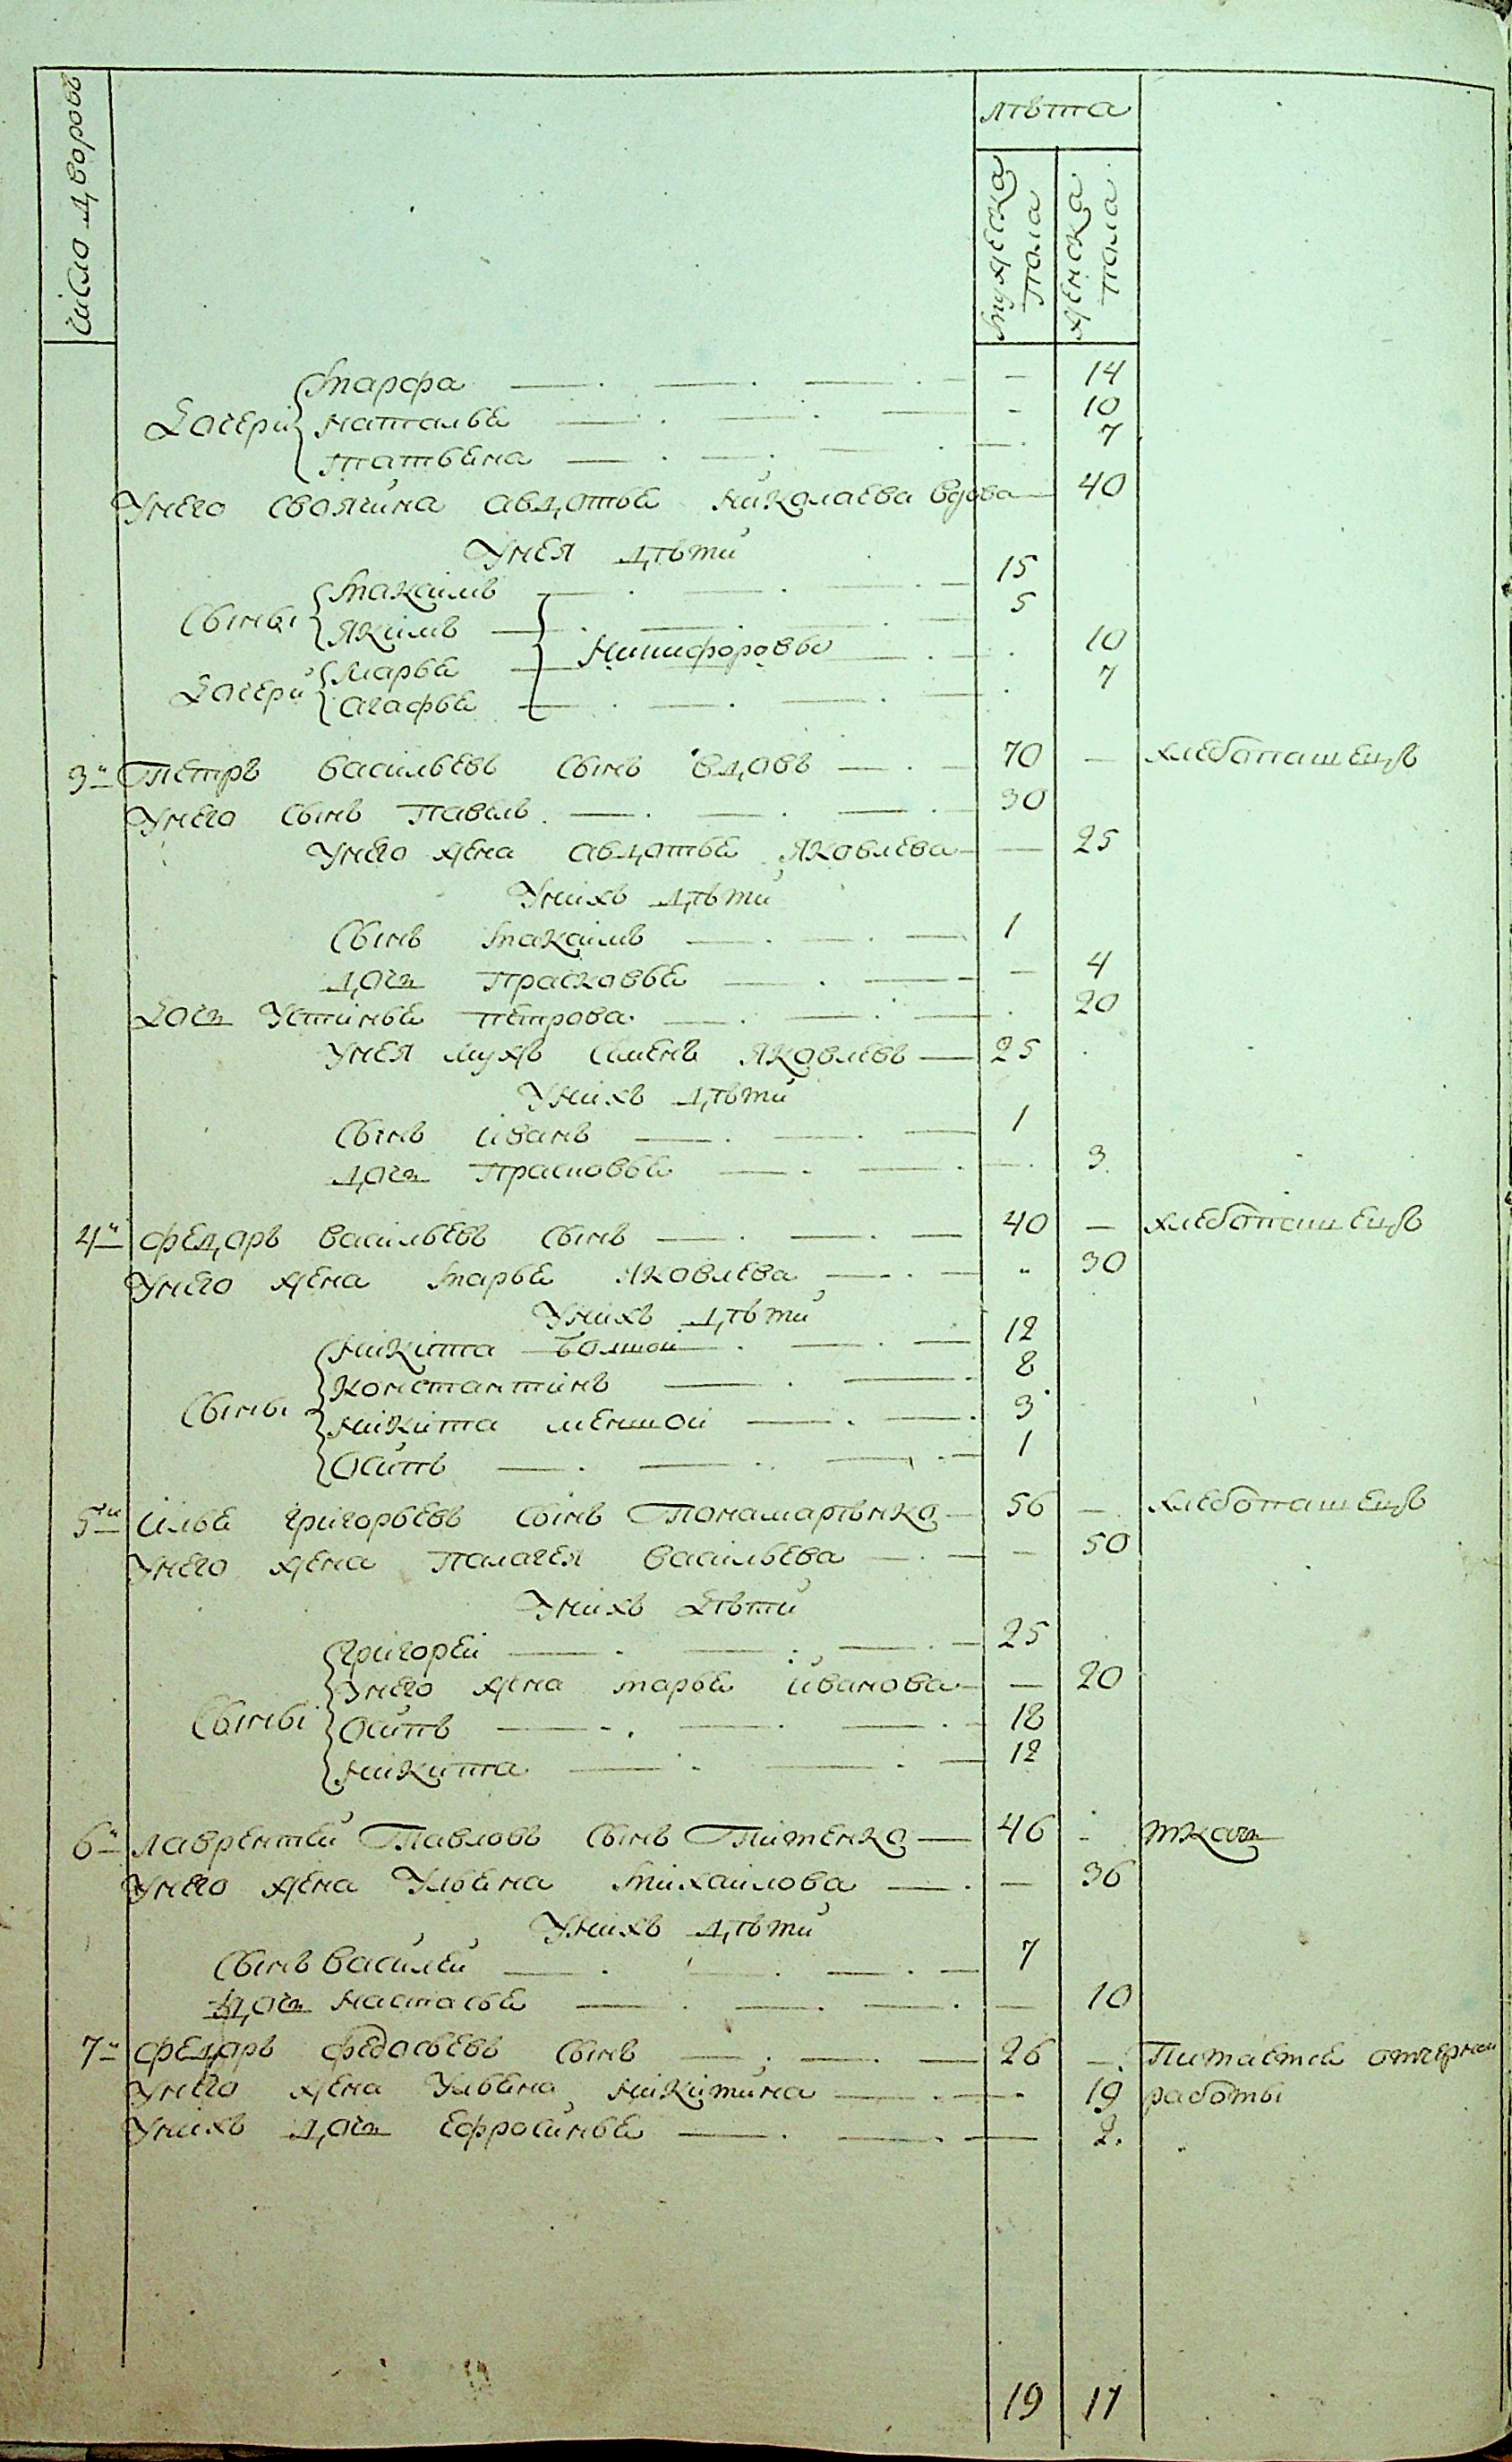 Число дворовъ
лѣта
мужеска пола
женска пола
Дочери
Марфа — — — — 14
Наталья — — — — 10
Татьяна — — — — 7
У него своячина Авдотья Николаева вдова — 40
У нея дѣти
Сыны
Максимъ — — — 15
Якимъ — — — 5
Никифоровы
Дочери
Марья — — — 10
Агафья — — — 7
3й Петръ Васильевъ сынъ вдовъ — — 70 — хлебопашецъ
У него сынъ Павелъ — — — 30
У него жена Авдотья Яковлева — — 25
У нихъ дѣти
Сынъ Максимъ — — — 1
Дочь Прасковья — — — 4
Дочь Устинья Петрова — — — 20
У нея мужъ Семенъ Яковлевъ — 25
У нихъ дѣти
Сынъ Иванъ — — — 1
Дочь Прасковья — — — 3
4й Федоръ Васильевъ сынъ — — — 40 — хлебопашецъ
У него жена Марья Яковлева — — „ 30
У нихъ дѣти
Сыны
Никита болшой — — 12
Константинъ — — 8
Никита меншой — — 3
Осипъ — — — 1
5й Илья Григорьевъ сынъ Понамарѣнко — 56 — хлебопашецъ
У него жена Палагея Васильева — — — 50
У нихъ дѣти
Сыны
Григорей — — — 25
У него жена Марья Иванова — — 20
Осипъ — — — 18
Никита — — — 12
6й Лаврентей Павловъ сынъ Питенко — 46 - ткачь
У него жена Ульяна Михайлова — — 36
У нихъ дѣти
Сынъ Василей — — — 7
Дочь Настасья — — — — 10
7й Федоръ Федосьевъ сынъ — — — 26 — Питается отчерной
У него жена Ульяна Никитина — — 19 работы
У нихъ дочь Ефросинья — — — 2
19 17